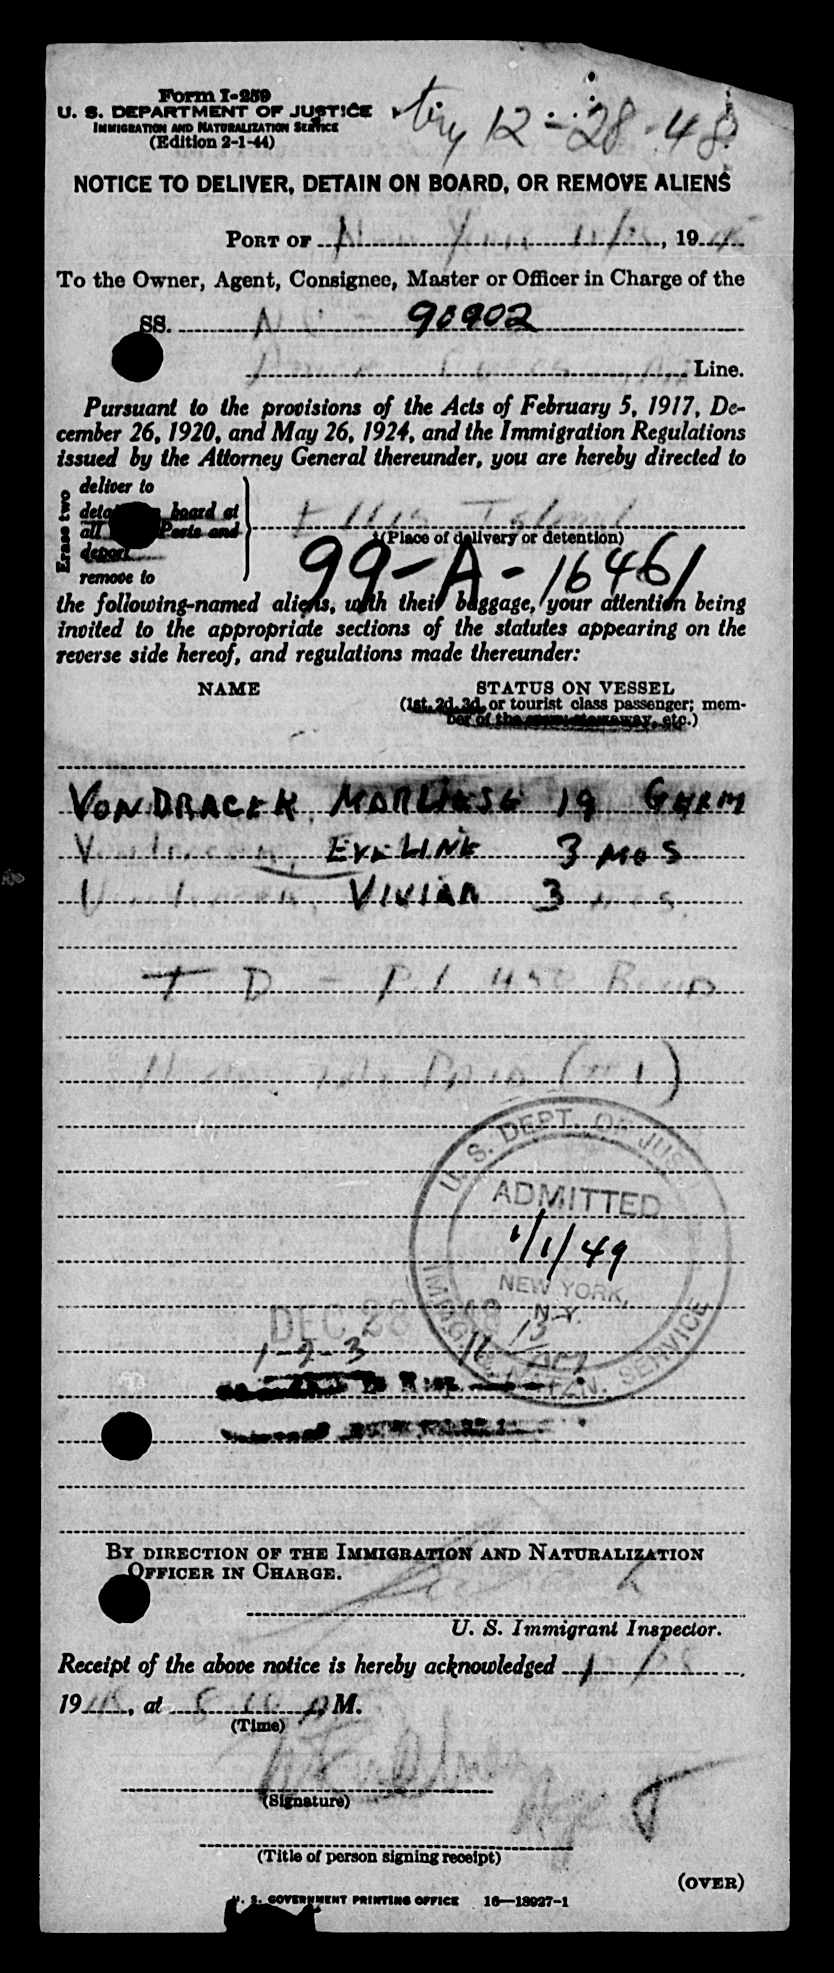 Form I-259
U. S. DEPARTMENT OF JUSTICE
IMMIGRATION AND NATURALIZATION SERVICE
(Edition 2-1-44)
12-28-48
NOTICE TO DELIVER, DETAIN ON BOARD, OR REMOVE ALIENS
PORT OF New York, 19
To the Owner, Agent, Consignee, Master or Officer in Charge of the
SS. 90902
Line.
Pursuant to the provisions of the Acts of February 5, 1917, De-
cember 26, 1920, and May 26, 1924, and the Immigration Regulations
issued by the Attorney General thereunder, you are hereby directed to
Erase two
deliver to
board at
all Ports and
deport
remove to
Ellis Island
(Place of delivery or detention)
99-A-16461
the following-named aliens, with their baggage, your attention being
invited to the appropriate sections of the statutes appearing on the
reverse side hereof, and regulations made thereunder:
NAME STATUS ON VESSEL
(1st, 2d, 3d, or tourist class passenger; mem-
ber of the crew, stowaway, etc.)
VONDRACEK, MARLIESE 19 GERM
VONDRACEK, EVELINE 3 MOS
VONDRACEK, VIVIAN 3 MOS.
T D - P.I. 450 BOND
PAID (#1)
U. S. DEPT. OF JUS
ADMITTED
1/1/49
NEW YORK,
N.Y.
IMMIG. NATZN. SERVICE
DEC 28 1948
1-2-3
BY DIRECTION OF THE IMMIGRATION AND NATURALIZATION
OFFICER IN CHARGE.
U. S. Immigrant Inspector.
Receipt of the above notice is hereby acknowledged
19, at M.
(Time)
(Signature)
(Title of person signing receipt)
(OVER)
U. S. GOVERNMENT PRINTING OFFICE 16—18927-1